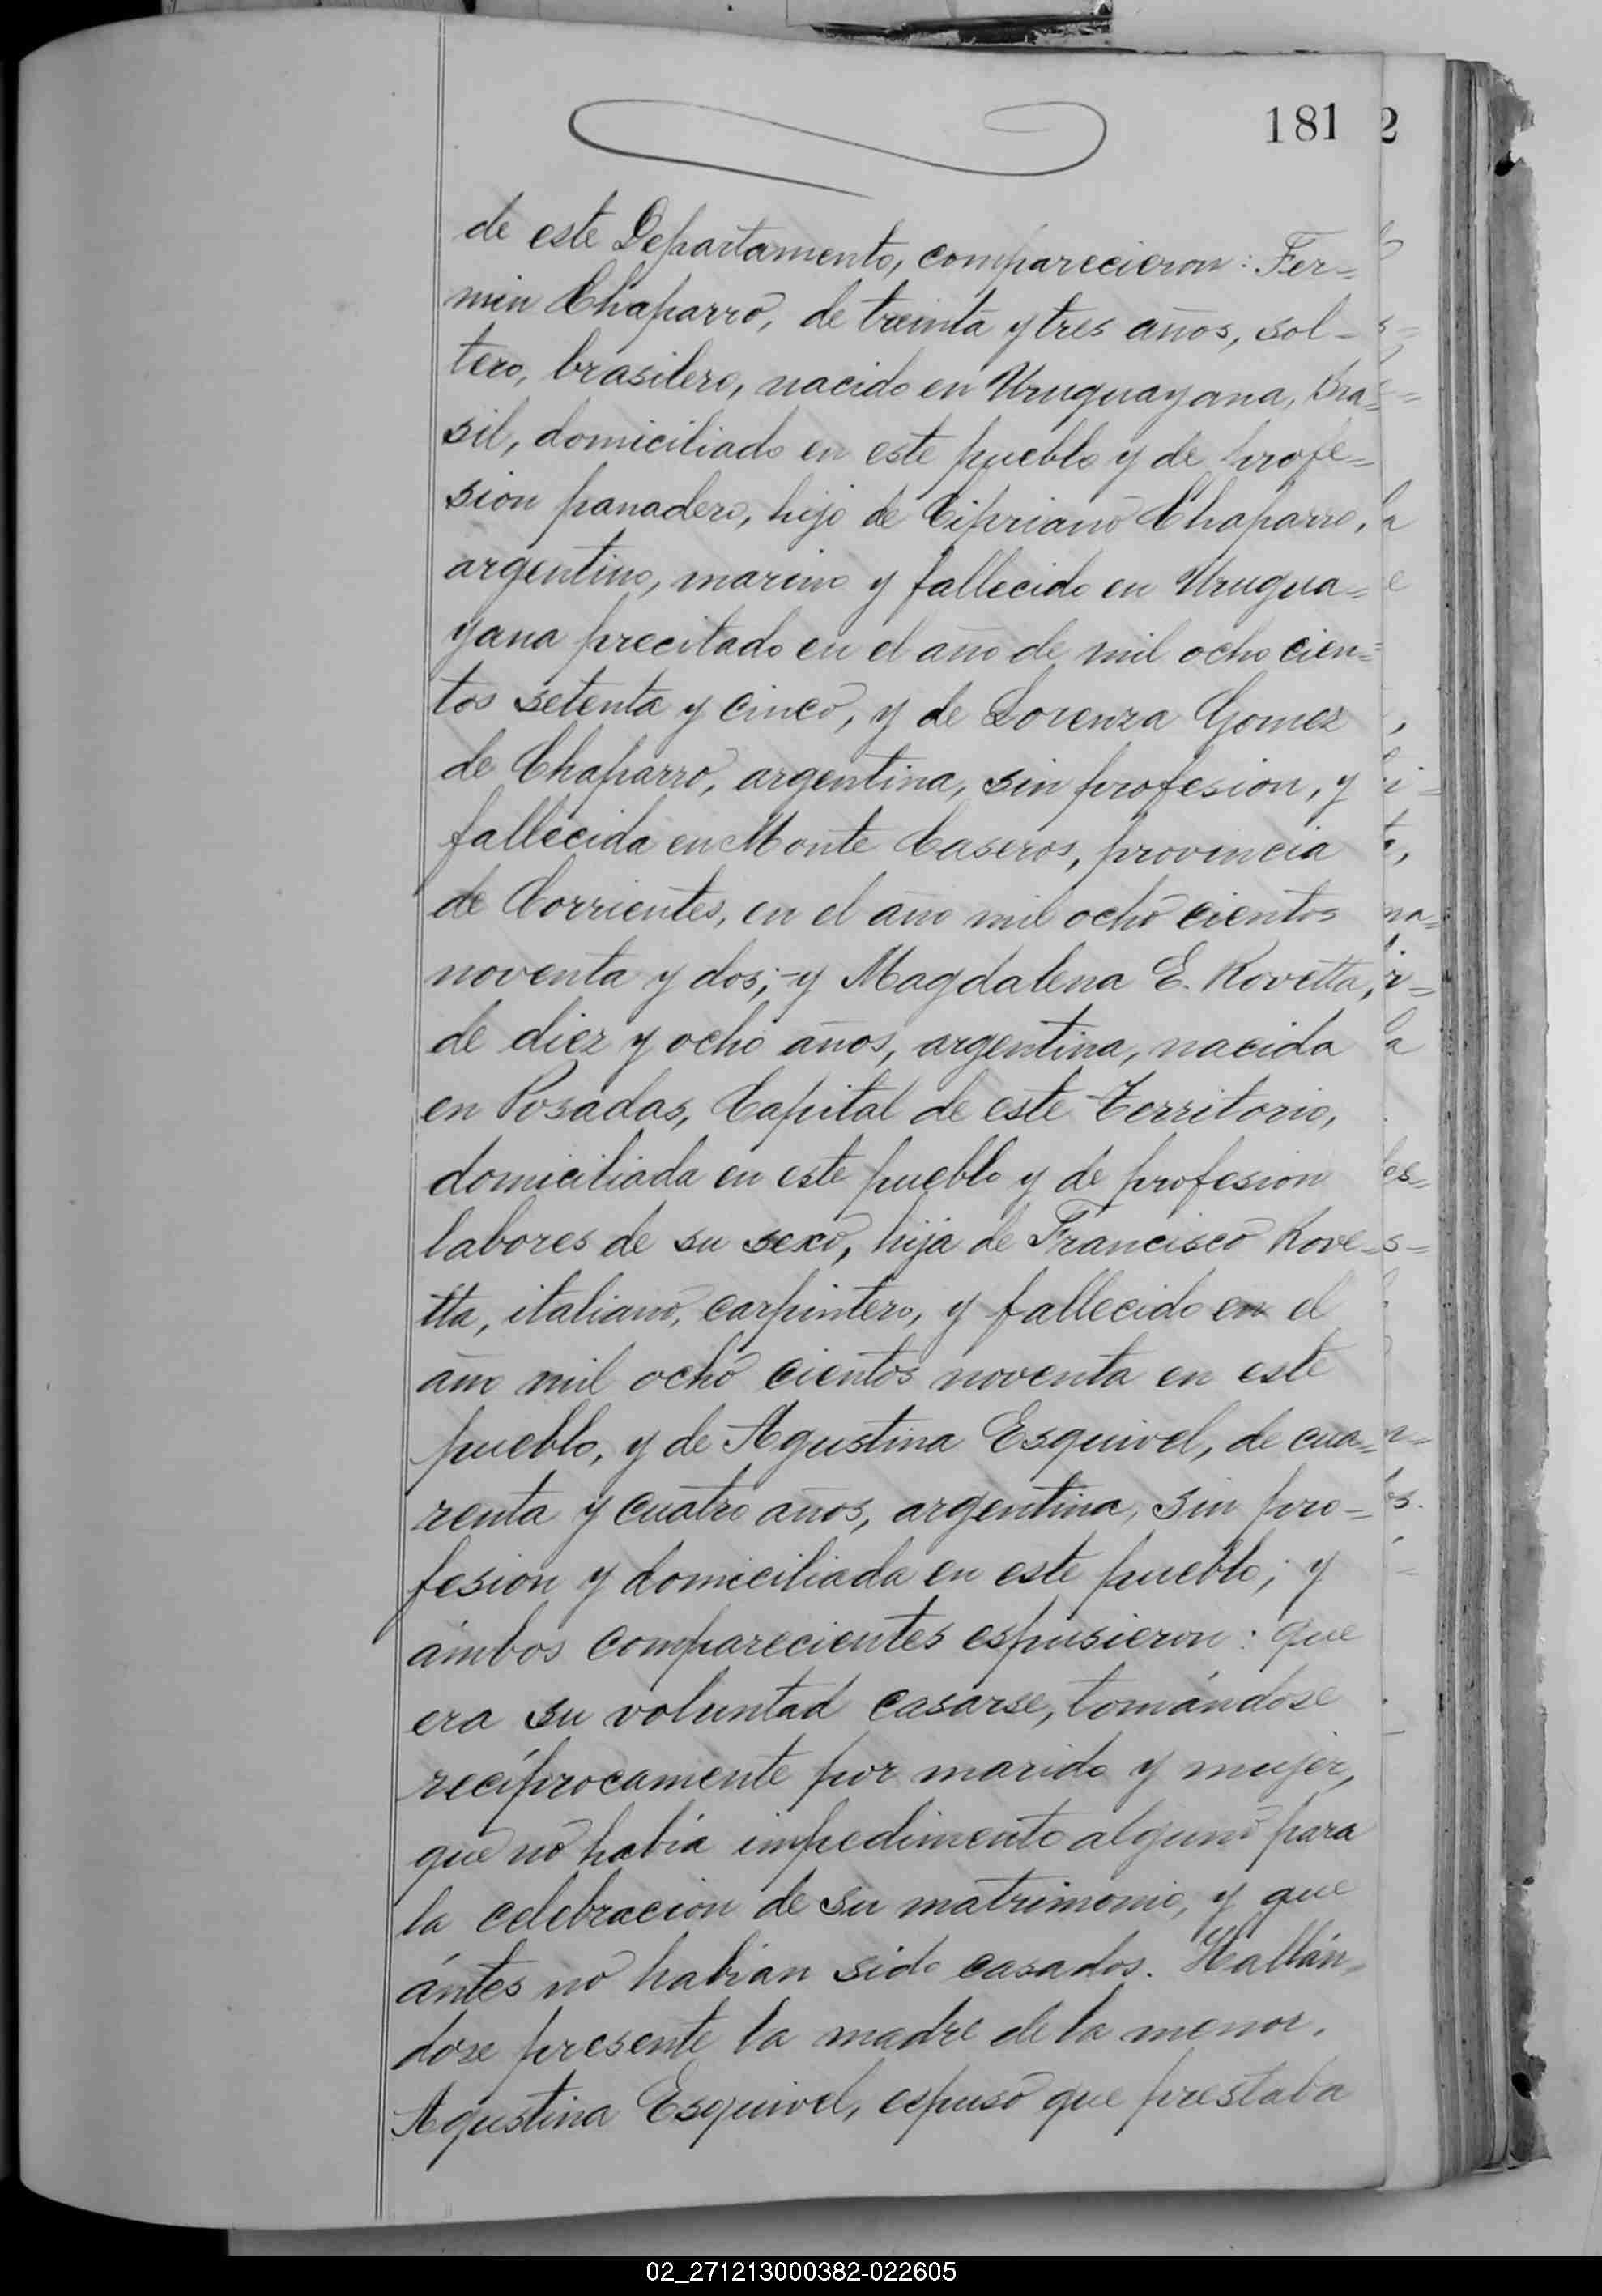 181 2
de este Departamento, comparecieron: Fer=
min Chaparro, de treinta y tres años, sol-
tero, brasilero, nacido en Uruguayana, Bra=
sil, domiciliado en este pueblo y de profe=
sion panadero, hijo de Cipriano Chaparro,
argentino, marino y fallecido en Urugua=
yana precitado en el año de mil ocho cien=
tos setenta y cinco, y de Lorenza Gomez
de Chaparro, argentina, sin profesion, y
fallecida en Monte Caseros, provincia
de Corrientes, en el año mil ocho cientos
noventa y dos;-y Magdalena E. Rovetta,
de diez y ocho años, argentina, nacida
en Posadas, Capital de este Territorio,
domiciliada en este pueblo y de profesion
labores de su sexo, hija de Francisco Rove=
tta, italiano, carpintero, y fallecido en el
año mil ocho cientos noventa en este
pueblo, y de Agustina Esquivel, de cua=
renta y cuatro años, argentina, sin pro=
fesion y domiciliada en este pueblo; y
ámbos comparecientes espusieron: que
era su voluntad casarse, tomándose
recíprocamente por marido y mujer,
que no había impedimento alguno para
la celebracion de su matrimonio, y que
ántes no habian sido casados. Hallán=
dose presente la madre de la menor,
Agustina Esquivel, espuso que prestaba
02_271213000382-022605